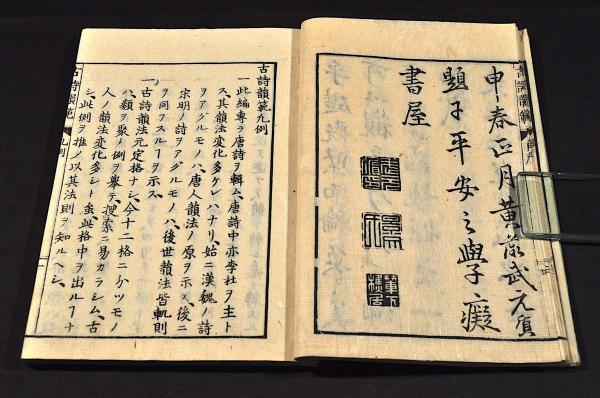 申春正月黄薇武元質
題于平安之學癡
書屋
古詩韻範凡例
一此編專ラ唐詩ヲ輯ム、唐詩中亦李杜ヲ主ト
ス、其韻法變化多ケレハナリ、始ニ漢魏ノ詩
ヲアグルモノハ、唐人韻法ノ原ヲ示ス、後ニ
宋明ノ詩ヲアグルモノハ、後世韻法皆軌則
ヲ同フスルヿヲ示ス、
一古詩韻法元定格ナシ、今十二格ニ分ツモノ
ハ、類ヲ聚メ例ヲ擧テ、搜索ニ易カラシム、古
人ノ韻法變化多シト虽𪜈格中ヲ出ルヿナ
シ、此例ヲ推乄以其法則ヲ知ルヘシ、
古詩韻範 凡例